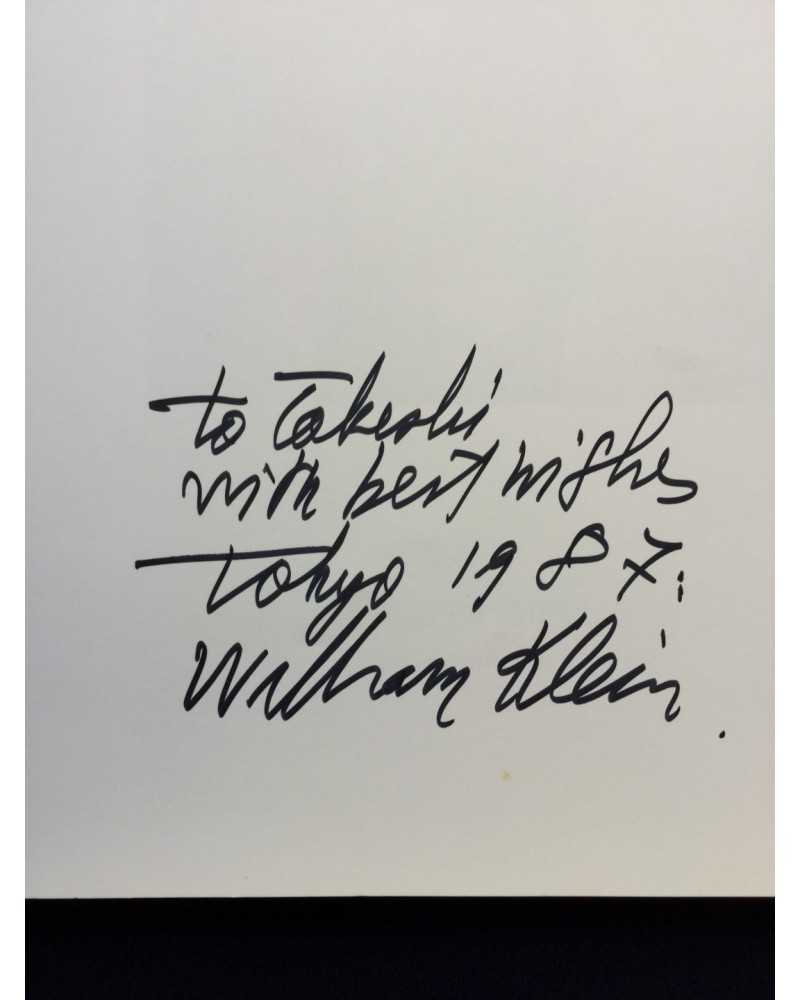 to Takeshi
with best wishes
Tokyo 1987.
William Klein.